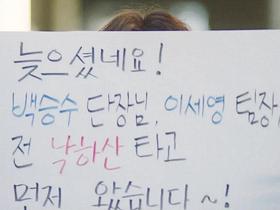 늦으셨네요!
백승수 단장님, 이세영 팀장
전 낙하산 타고
먼저 왔습니다~!